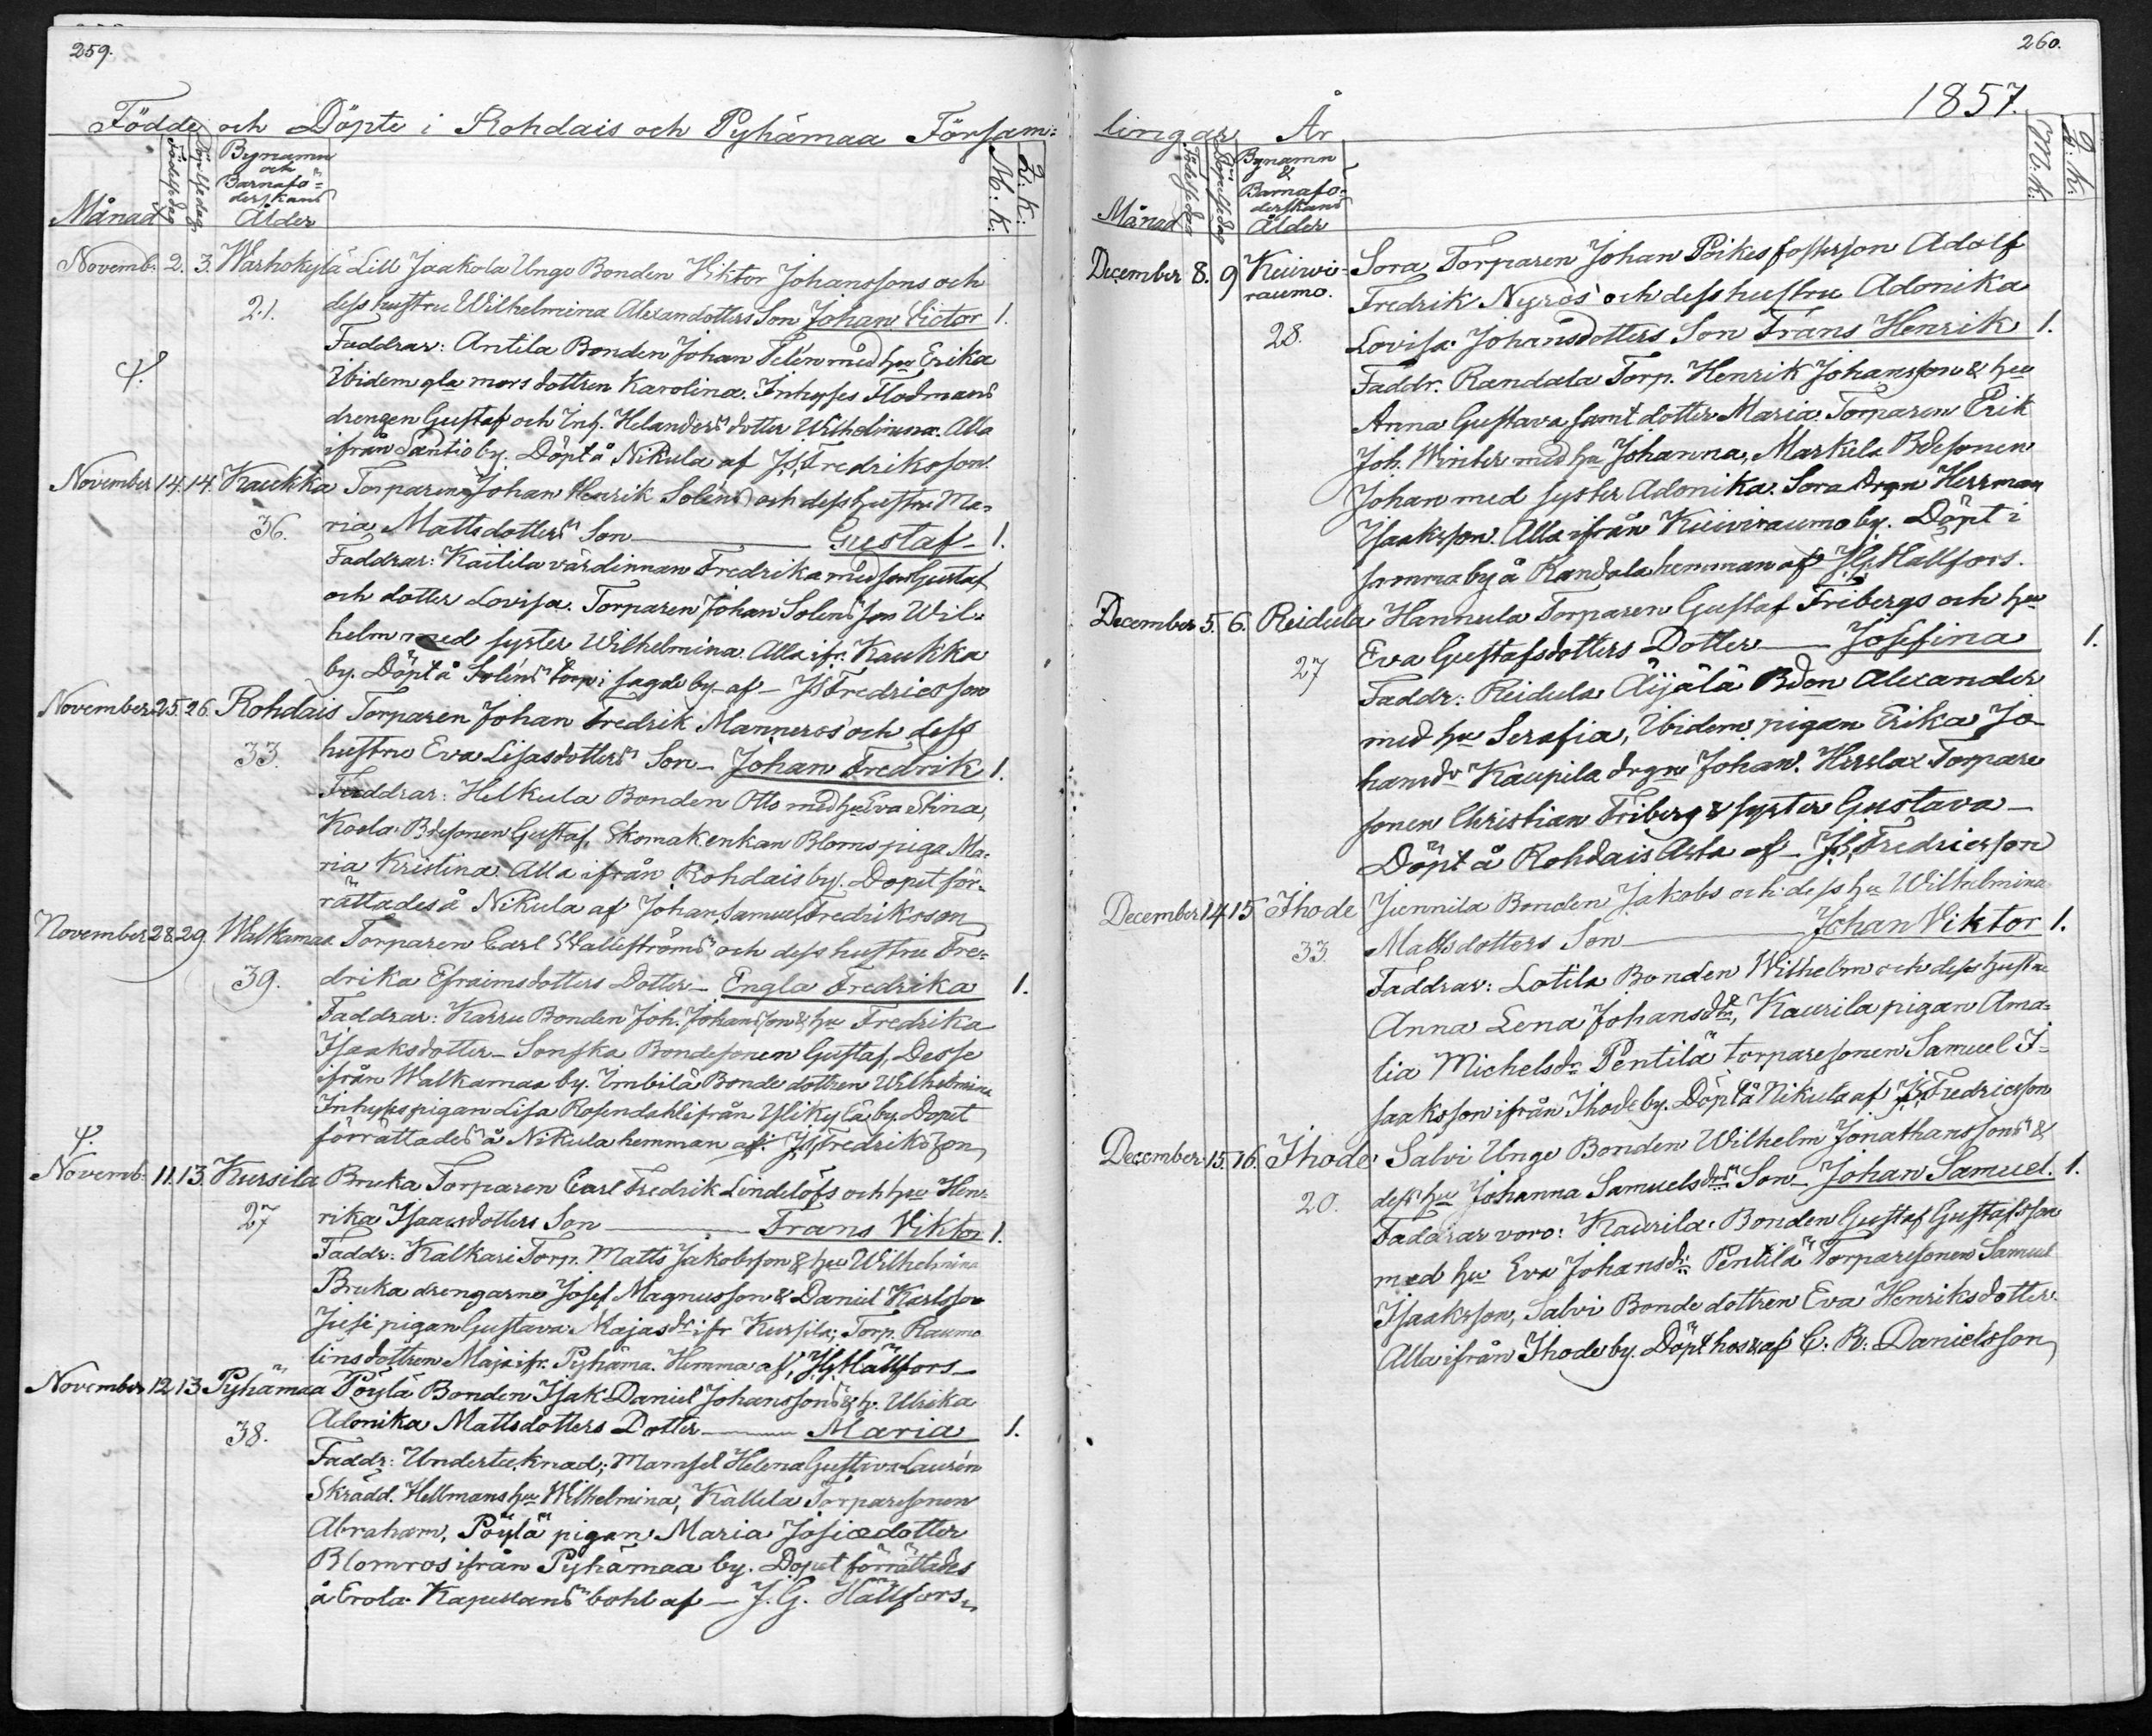 259.
Födde och Döpte i Rohdais och Pyhämaa Församˍ
Månad
Födelsedag
Döpelsedag
Bynamn
och
Barnafö=
derskans
Ålder
M:k:
Q:k:
Novemb. 2. 3. Warhokylä Lill Jaakola Unge Bonden Viktor Johanssons och
21. dess hustru Wilhelmina Alexandotters Son Johan Victor 1.
Faddrar: Antila Bonden Johan Telén med hu Erika
Ibidem gla mors dottren Karolina. Inhyses Flodmans
drengen Gustaf och Inh. Helanders dotter Wilhelmina. Alla
ifrån Santio by. Döpt å Nikula af J.S. Fredriksson.
November 14. 14. Kaukka Torparen Johan Henrik Soléns och dess hustru Ma=
36. ria Mattsdotters Son Gustaf 1.
Faddrar: Kaitila värdinnan Fredrika med son Gustaf
och dotter Lovisa. Torparen Johan Solens son Wil=
helm med syster Wilhelmina. Alla ifr. Kaukka
by. Döpt å Soléns torp i sagde by af J S Fredricsson
November 25. 26. Rohdais Torparen Johan Fredrik Manneros och dess
33. hustru Eva Lisasdotters Son Johan Fredrik 1.
Faddrar: Helkula Bonden Otto med hu Eva Stina,
Koola Bdesonen Gustaf, Skomak.enkan Bloms piga Ma=
ria Kristina. Alla ifrån Rohdais by. Dopet för=
rättades å Nikula af Johan Samuel Fredriksson
November 28. 29. Walkamaa Torparen Carl Wallströms och dess hustru Fre=
39. drika Efraimsdotters Dotter Engla Fredrika 1.
Faddrar: Karru Bonden Joh. Johansson & hu Fredrika
Isaksdotter Sonska Bondesonen Gustaf. Desse
ifrån Walkamaa by. Imbilä Bonde dottren Wilhelmina
Inhyses pigan Lisa Rosendahl ifrån Ylikylä by. Dopet
förrättades å Nikula hemman af J.S. Fredriksson
Novemb. 11. 13. Kursila Bruka Torparen Carl Fredrik Lindelöfs och hu Hen=
27 rika Isaacsdotters Son Frans Viktor 1.
Faddr: Kalkari Torp. Matts Jakobsson & hu Wilhelmina
Bruka drengarne Josef Magnusson & Daniel Karlsson
Jusi pigan Gustava Majasdr ifr Kursila; Torp. Raumo
lins dottren Maja ifr. Pyhäma. Hemma af J.G. Hällfors
November 12. 13 Pyhämaa Pöylä Bonden Isak Daniel Johanssons & h. Ulrika
38. Adonika Mattsdotters Dotter Maria 1.
Faddr: Undertecknad; Mamsel Helena Gustava Laurén
Skrädd. Hellmans hu Wilhelmina, Kallela Torparesonen
Abraham, Pöylä pigan Maria Josiædotter
Blomros ifrån Pyhämaa by. Dopet förrättades
å Erola Kapellans bohl af J. G. Hällfors
260.
1857.
lingar År
Månad
Födelsedag
Döpelsedag
Bynamn
&
Barnafö=
derskans
Ålder
M:k:
Q:k:
December 8. 9 Kuiwi= Sora Torparen Johan Poikes fosterson Adolf
raumo. Fredrik Nyros och dess hustru Adonika
28. Lovisa Johansdotters Son Frans Henrik 1.
Faddr. Randala Torp. Henrik Johansson & hu
Anna Gustava samt dotter Maria. Torparen Erik
Joh. Winter med hu Johanna, Markula Bdesonen
Johan med syster Adonika. Sora drgn Herrman
Isaksson. Alla ifrån Kuiviraumo by. Döpt i
samma by å Randala hemman af J.G. Hällfors.
December 5. 6. Reidula Hannula Torparen Gustaf Fribergs och hu
27 Eva Gustafsdotters Dotter Josefina 1.
Faddr: Reidula Äijälä Bden Alexander
med hu Serafia, Ibidem pigan Erika Jo
hansdr Kaupila drgn Johan. Torpare
sonen Christian Friberg & syster Gustava
Döpt å Rohdais Arla af J.S. Fredricsson
December 14 15 Ihode Junnila Bonden Jakobs och dess hu Wilhelmina
33. Mattsdotters Son Johan Viktor 1.
Faddrar: Lotila Bonden Wilhelm och dess hustru
Anna Lena Johansdtr, Kaurila pigan Ama=
lia Michelsdr Pentilä torparesonen Samuel I=
saksson ifrån Ihode by. Döpt å Nikula af J.S. Fredricsson
December 15. 16. Ihode Salvi Unge Bonden Wilhelm Jonathanssons &
20. dess hu Johanna Samuelsdrs Son Johan Samuel. 1.
Faddrar voro: Kaurila Bonden Gustaf Gustafsson
med hu Eva Johansdr Pentilä Torparesonen Samuel
Isaksson, Salvi Bonde dottren Eva Henriksdotter.
Alla ifrån Ihode by. Döpt hos & af C. R. Danielsson